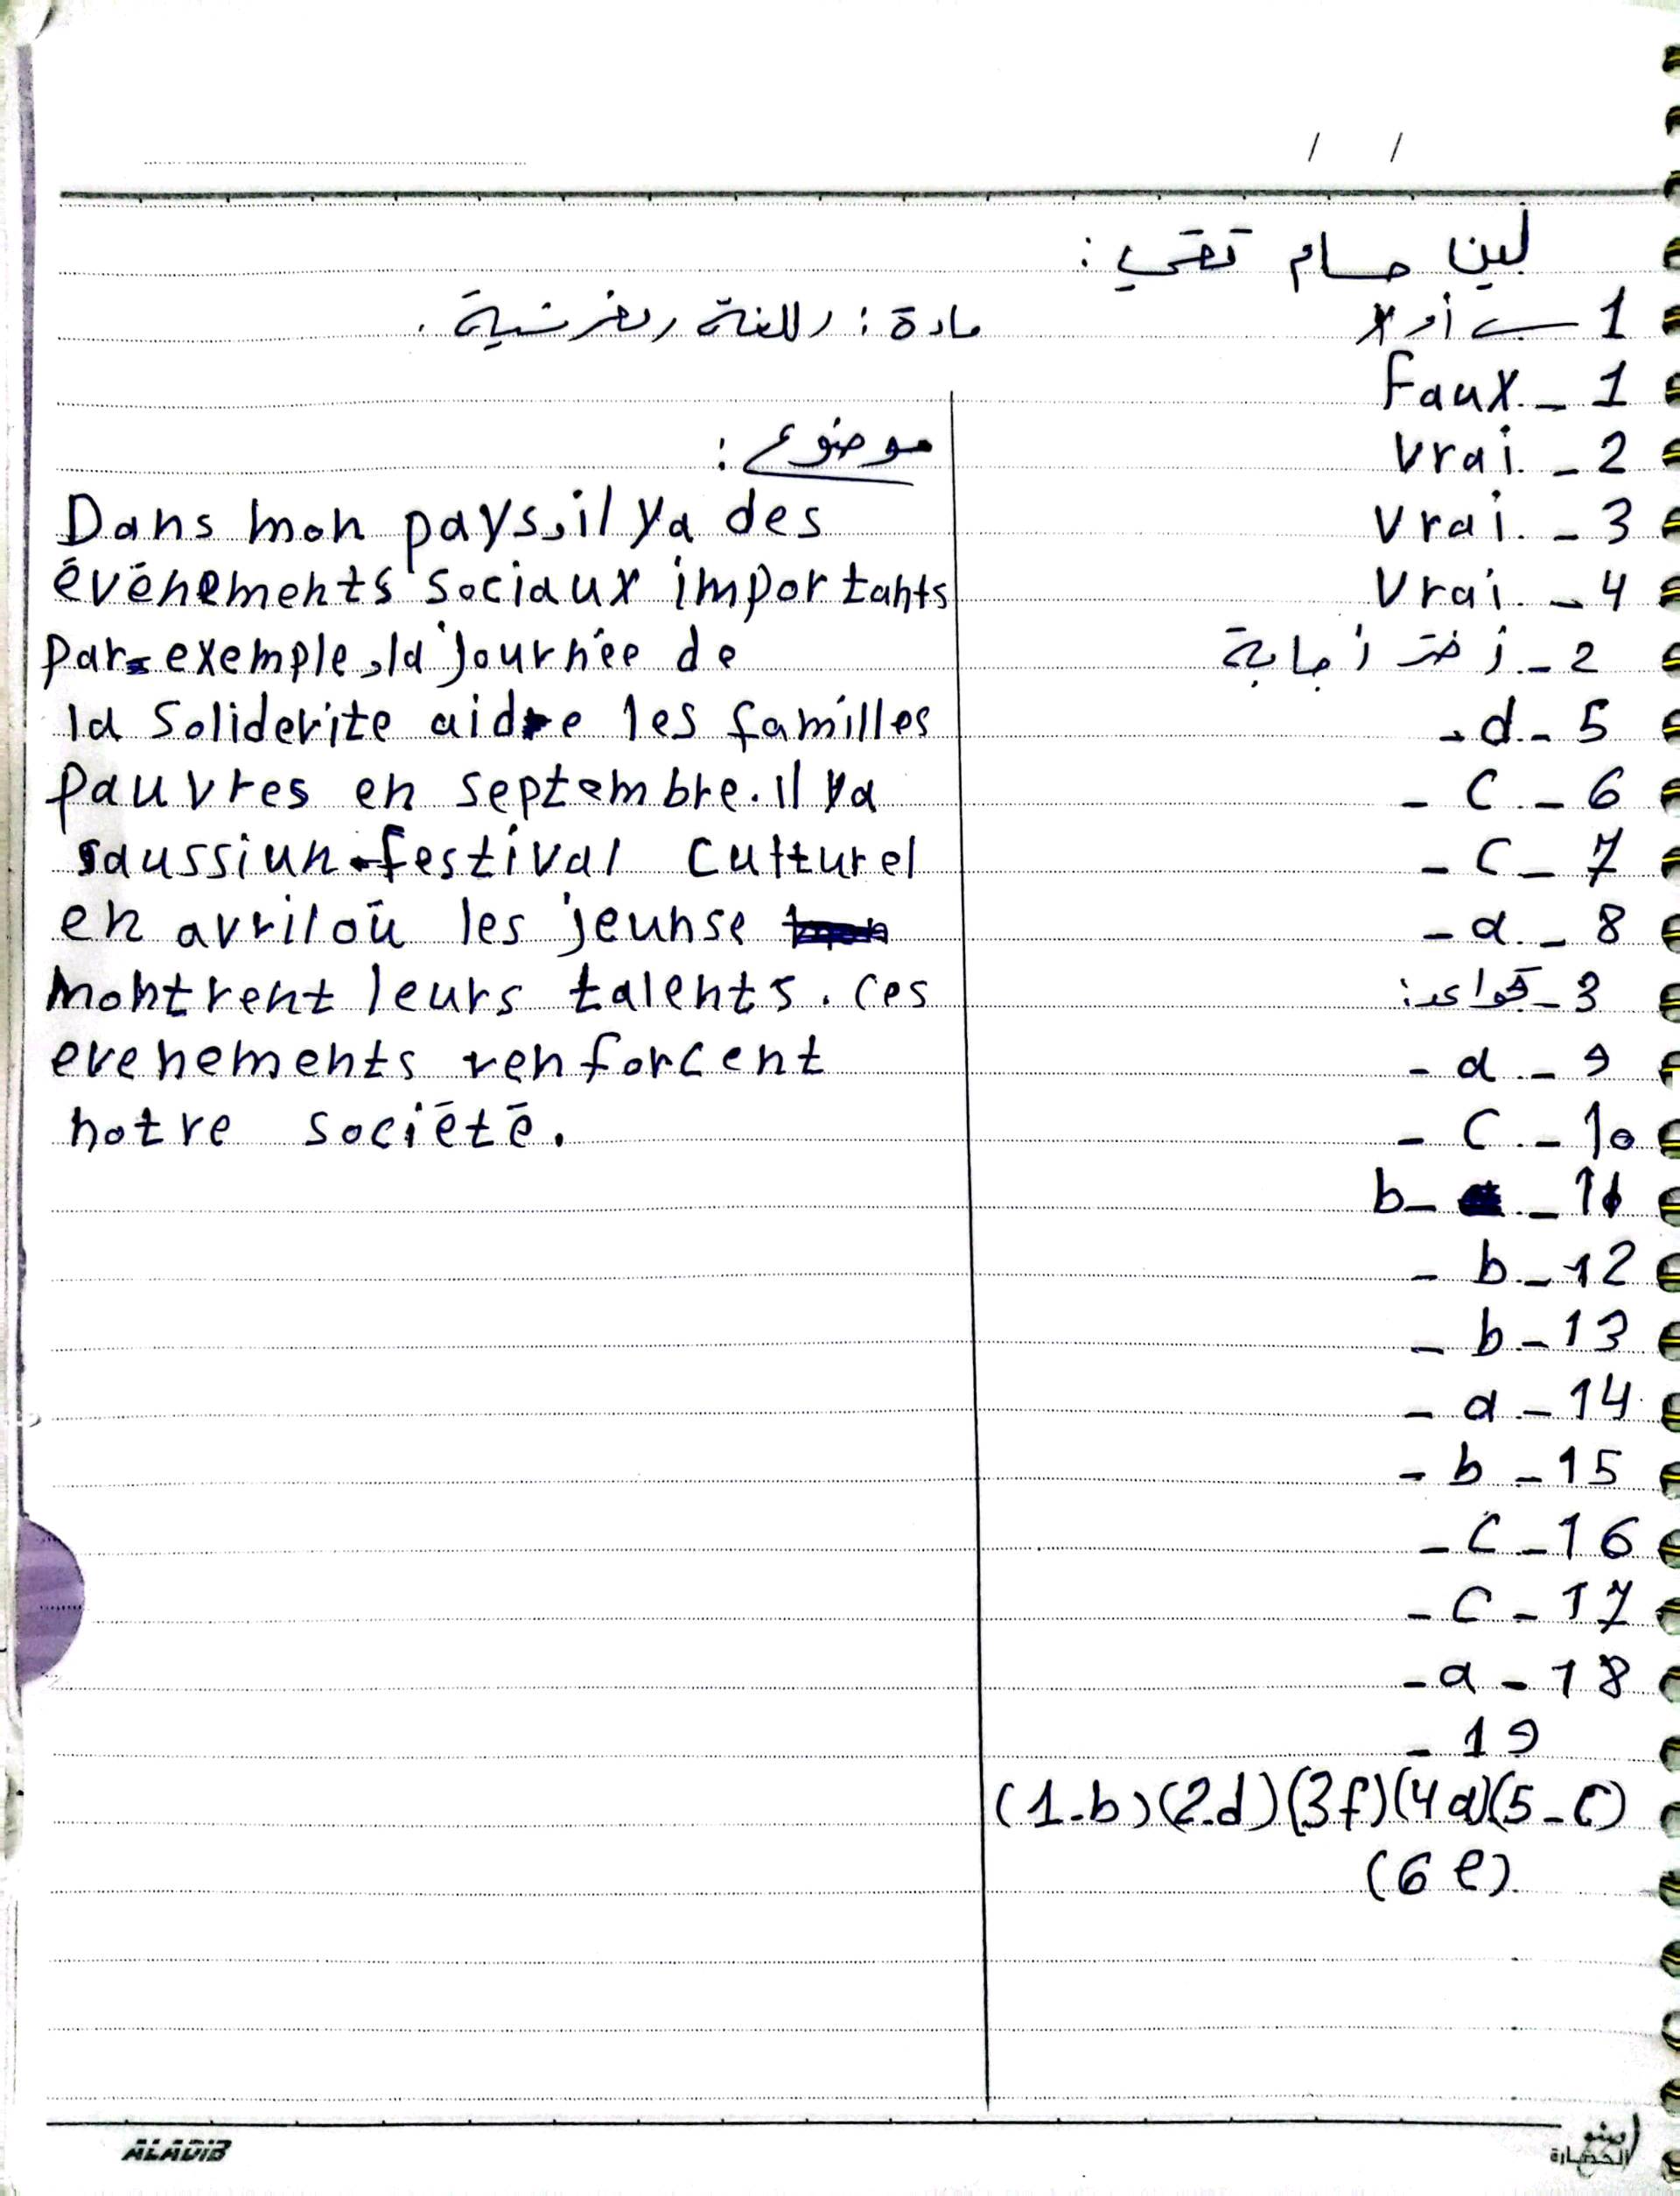 / /
لين حسام تقي :
مادة : اللغة الفرنسية .
1
Faux - 1
Vrai - 2
Vrai - 3
Vrai - 4
2 - اختر اجابة
- d - 5
- C - 6
- C - 7
- a - 8
3 - قواعد:
- a - 9
- C - 10
b - - 11
- b - 12
- b - 13
- a - 14
- b - 15
- C - 16
- C - 17
- a - 18
- 19
(1-b) (2-d) (3f) (4a) (5-C)
(6e)
موضوع :
Dans mon pays, il ya des
événements sociaux importants
par exemple, la journée de
la Soliderite aide les familles
pauvres en septembre. il ya
aussi un festival Culturel
en avril où les jeunse
montrent leurs talents. Ces
evenements renforcent
notre société.
ALADIB
الحضارة